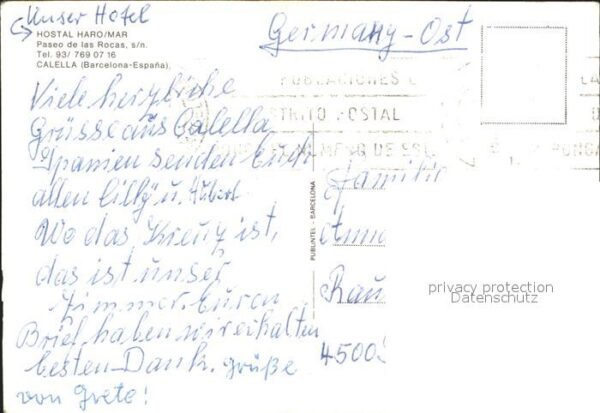 Unser Hotel
HOSTAL HARO/MAR
Paseo de las Rocas, s/n.
Tel. 93/ 769 07 16
CALELLA (Barcelona-España)
Germany-Ost
POBLACIONES
DISTRITO POSTAL
NUMERO DE
Viele herzliche
Grüsse aus Calella
Spanien senden Euch
allen Lilly u. Hubert
Wo das Kreuz ist,
das ist unser
Zimmer. Euren
Brief haben wir erhalten
besten Dank. Grüße
von Grete!
PUBLINTEL - BARCELONA
Familie
4500
privacy protection
Datenschutz